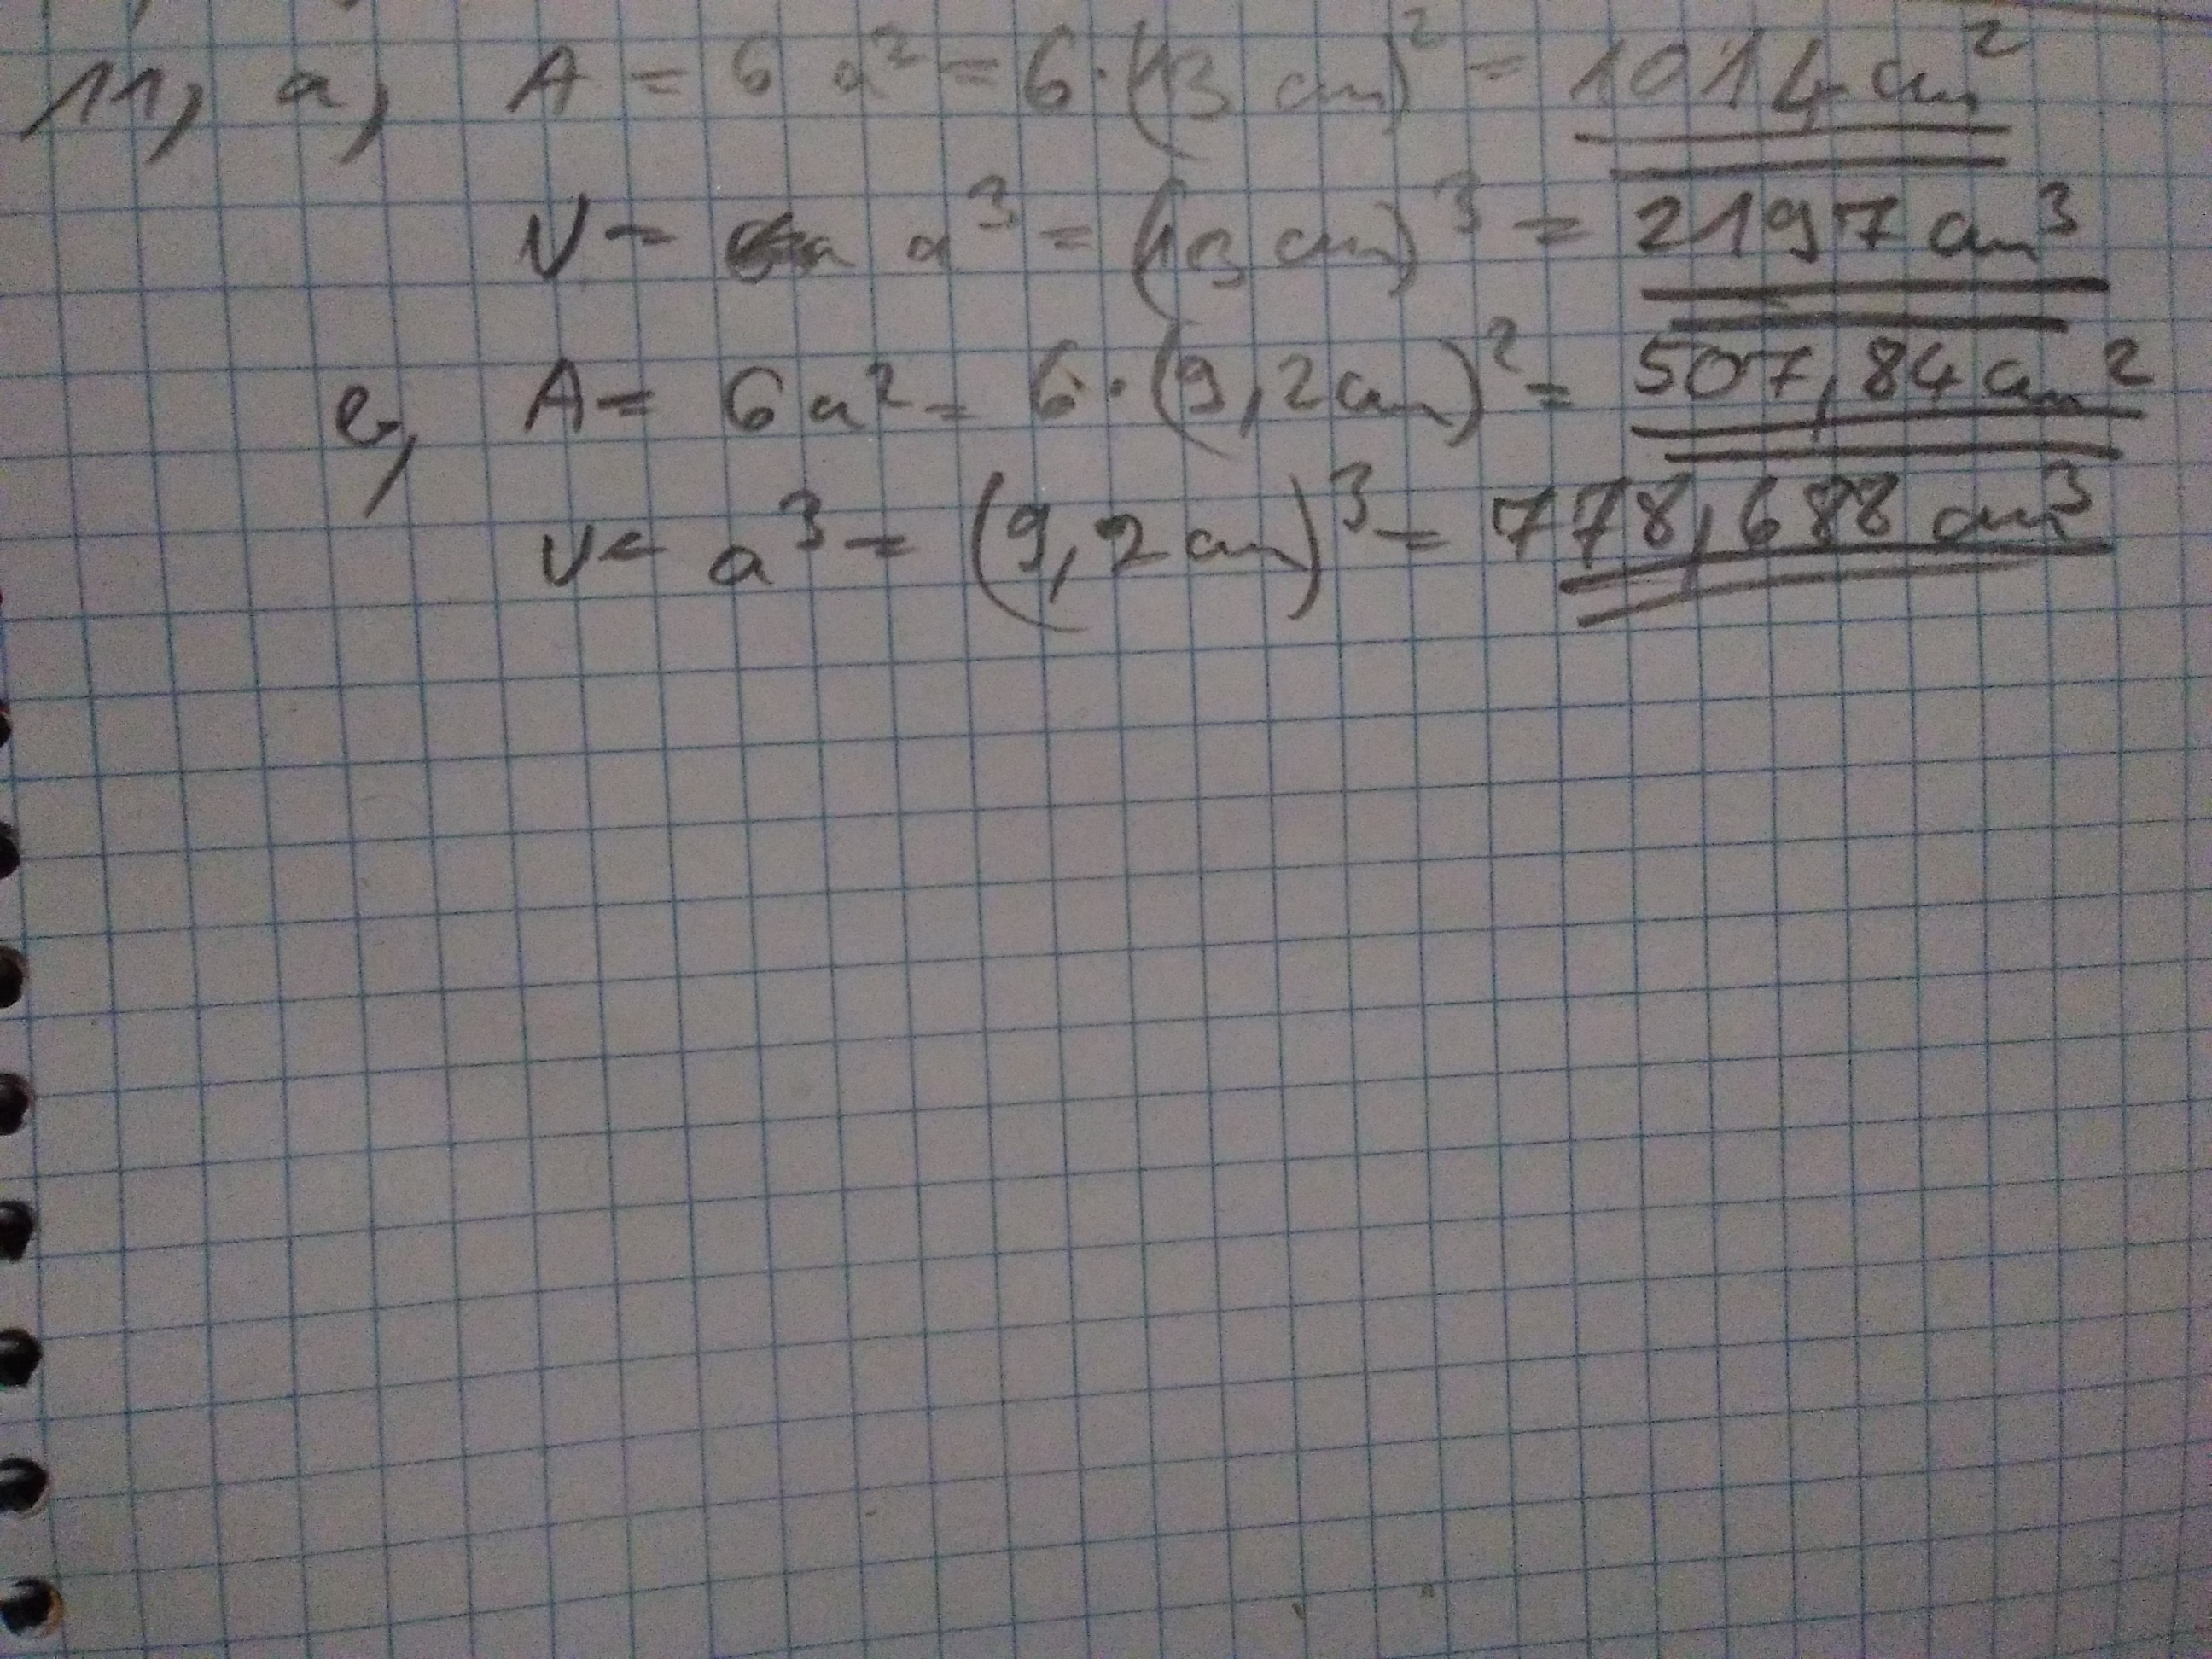 11, a, A = 6 a² = 6·(13 cm)² = 1014 cm²
V = a³ = (13 cm)³ = 2197 cm³
e, A = 6a² = 6·(9,2cm)² = 507,84 cm²
V = a³ = (9,2 cm)³ = 778,688 cm³